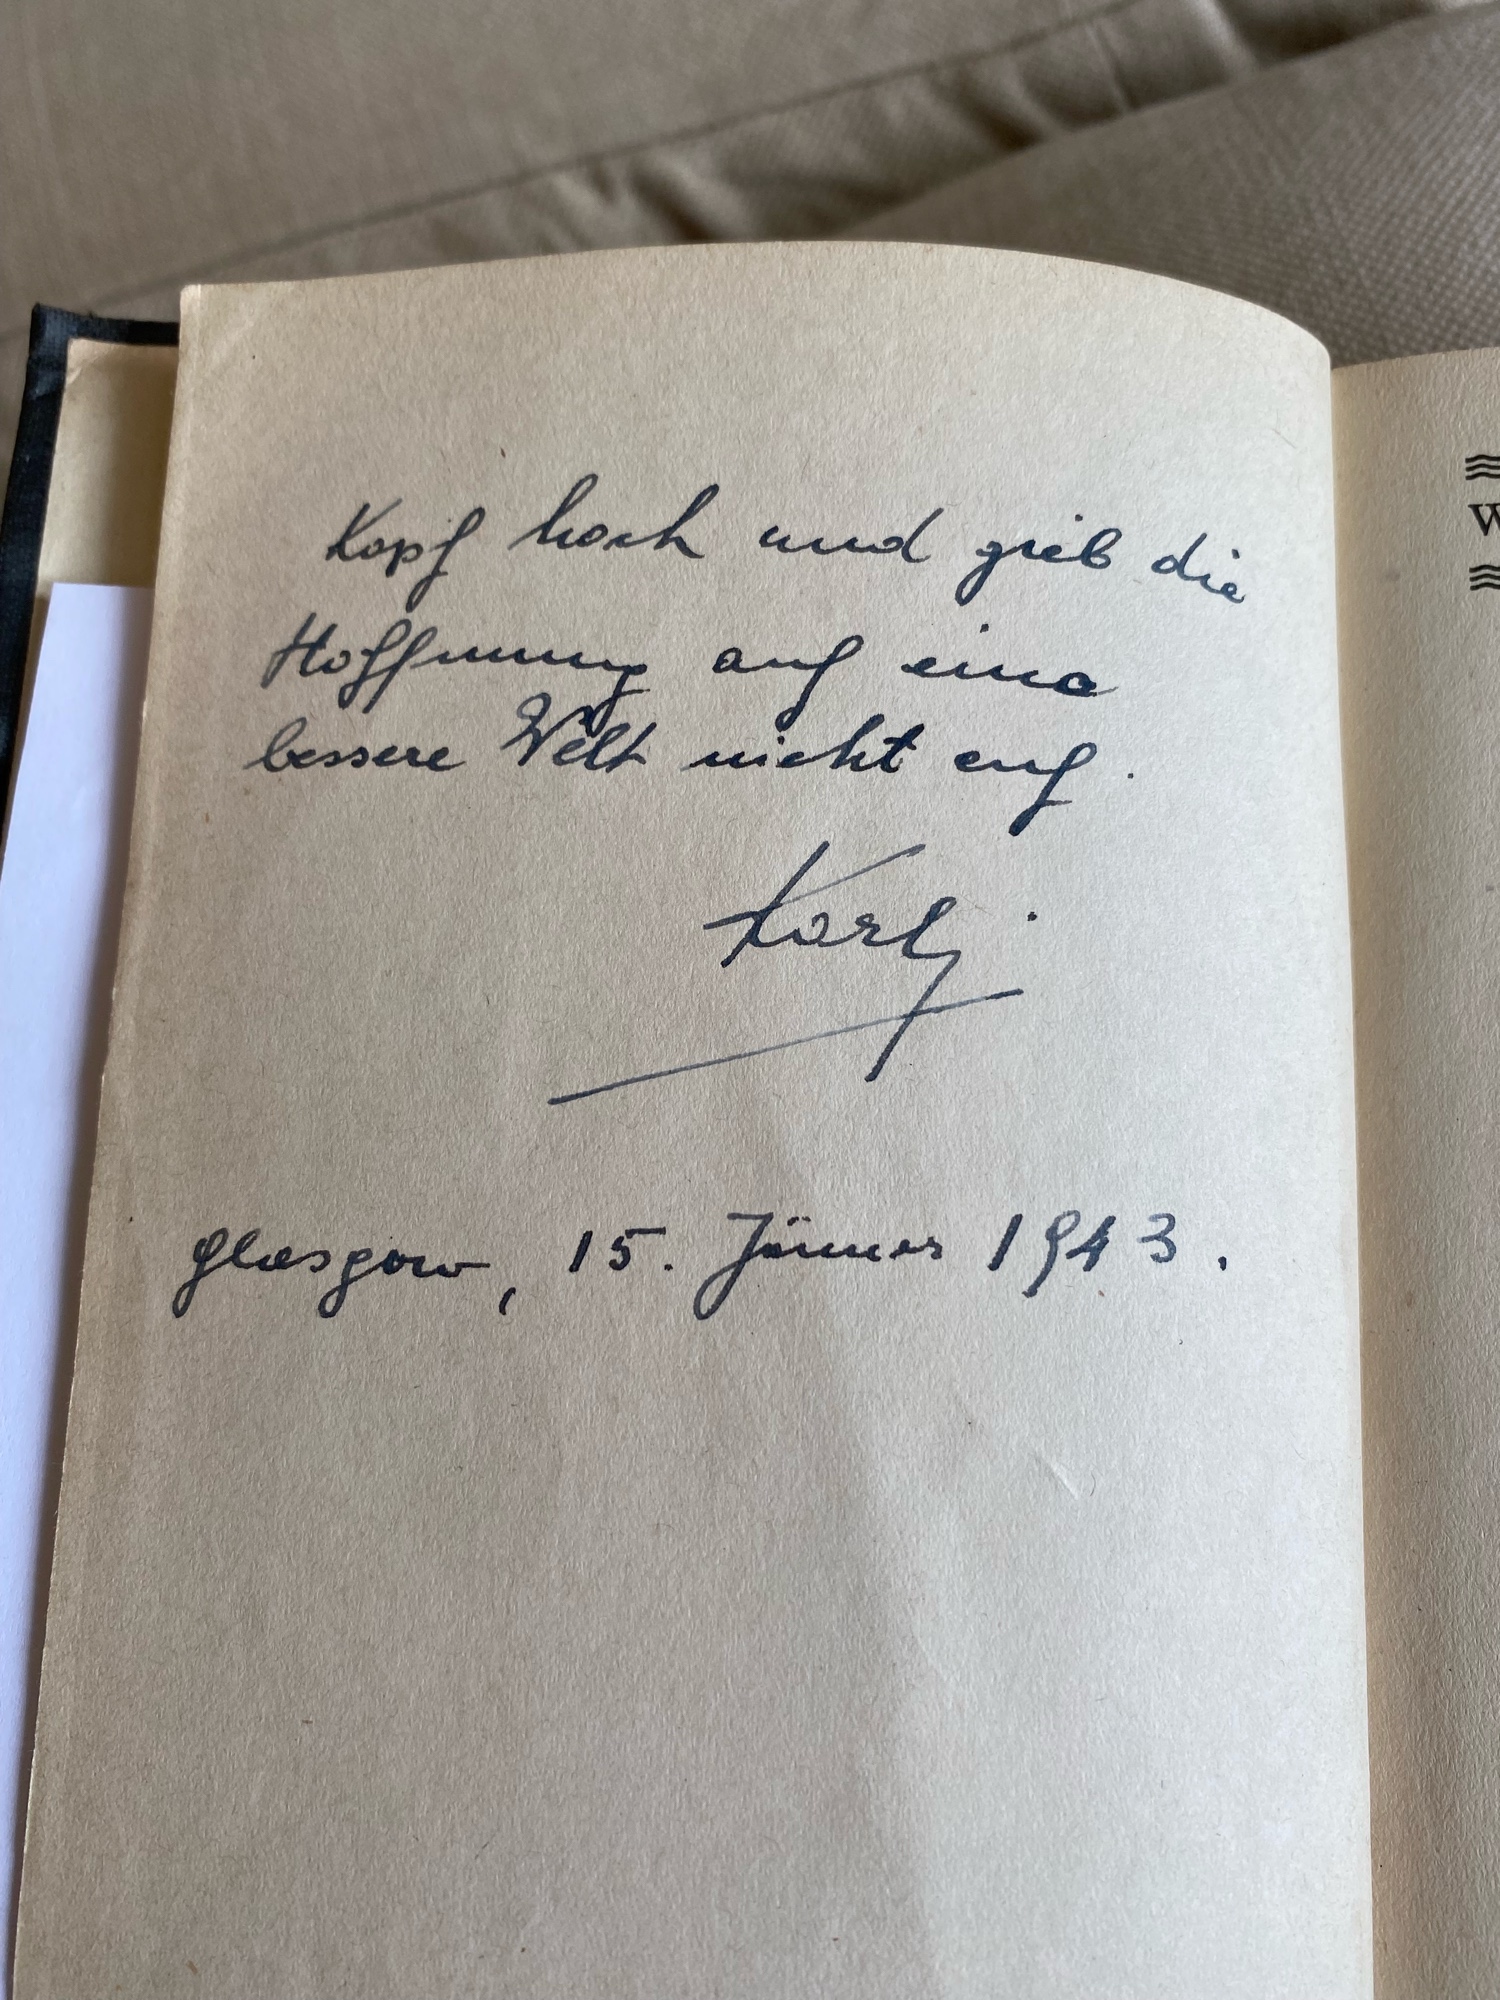 Kopf hoch und gieb die
Hoffnung auf eine
bessere Welt nicht auf.
Karlj
Glasgow, 15. Jänner 1943.
W